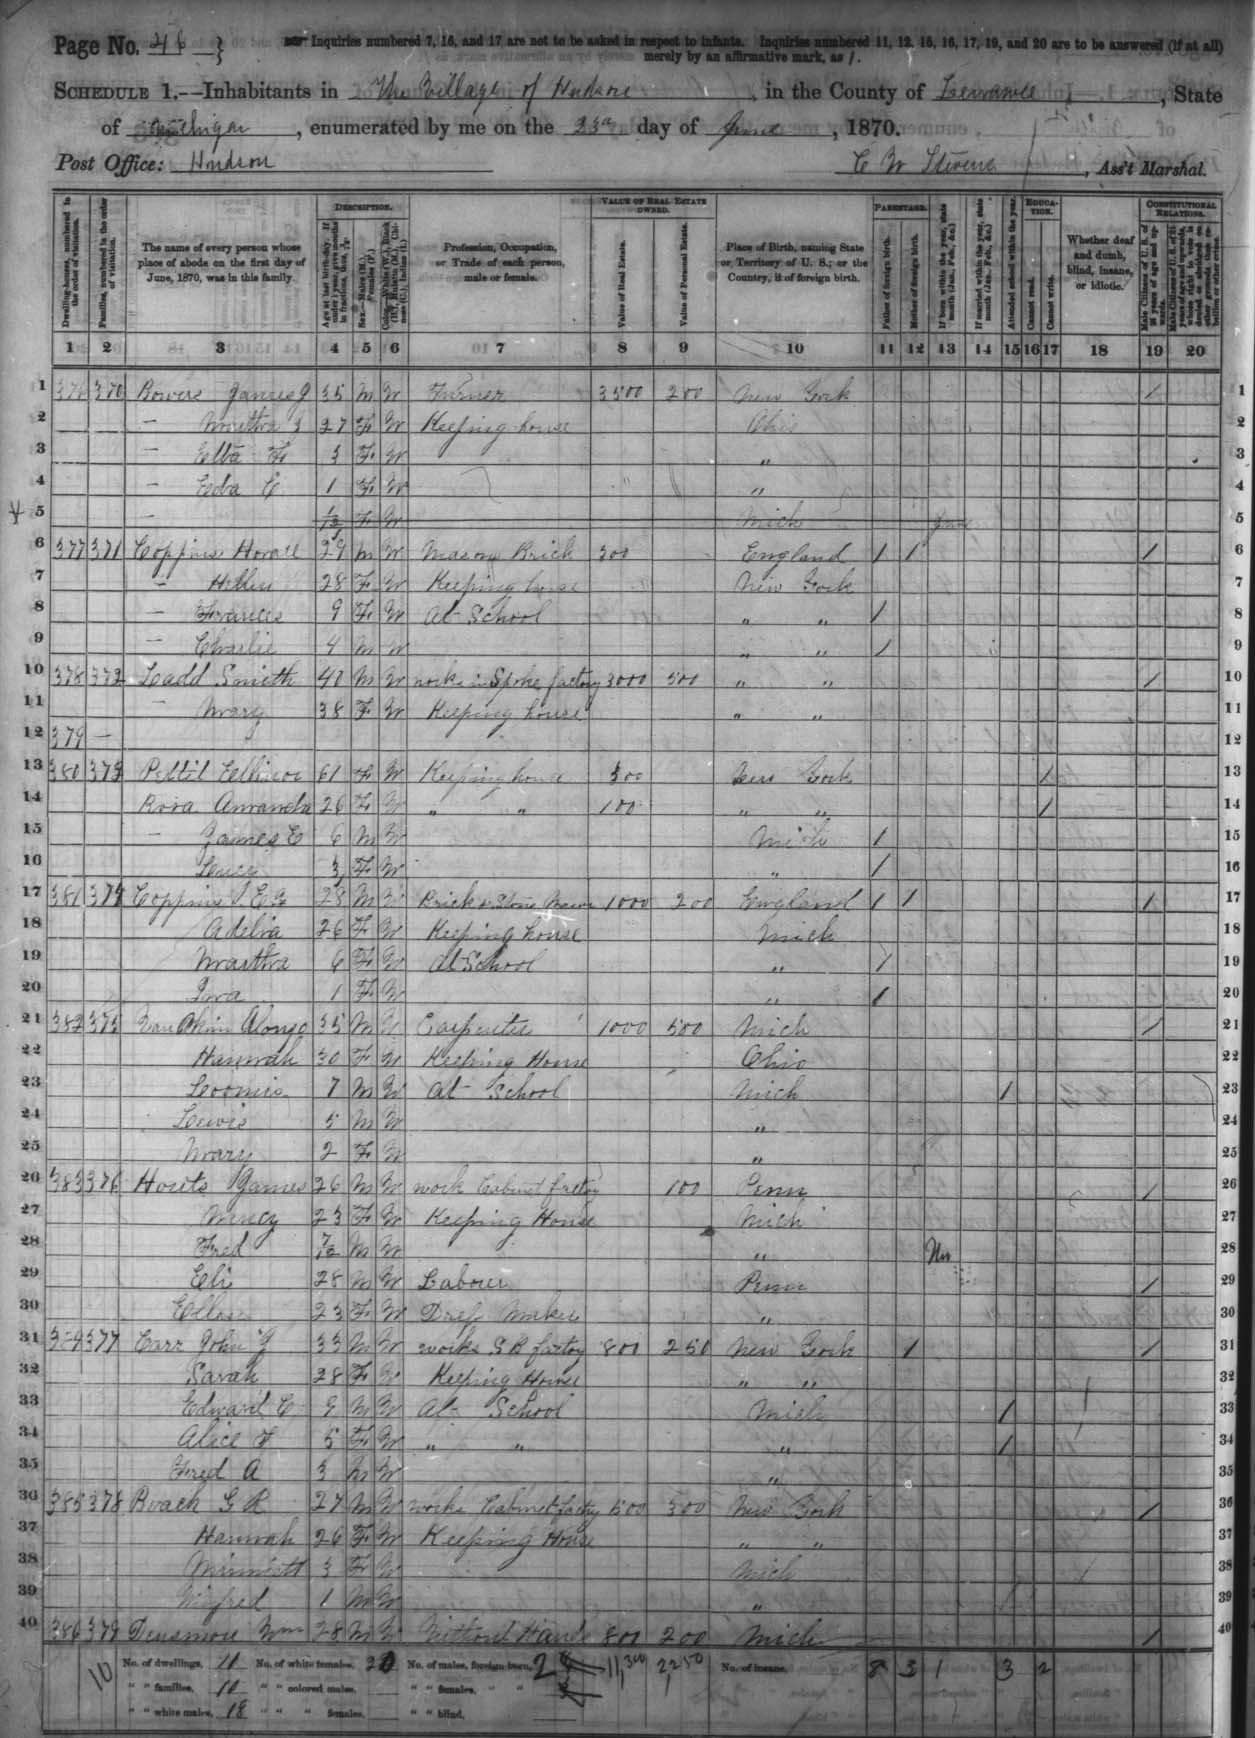 Page No. 48
Inquiries numbered 7, 16, and 17 are not to be asked in respect to infants. Inquiries numbered 11, 12, 15, 16, 17, 19, and 20 are to be answered (if at all) merely by an affirmative mark, as /.
SCHEDULE 1.—Inhabitants in The Village of Hudson, in the County of Lenawee, State
of Michigan, enumerated by me on the 23d day of June, 1870.
Post Office: Hudson C W Stevens, Ass't Marshal.
DESCRIPTION. VALUE OF REAL ESTATE OWNED. PARENTAGE. EDUCATION. CONSTITUTIONAL RELATIONS.
Dwelling-houses, numbered in the order of visitation.
Families, numbered in the order of visitation.
The name of every person whose place of abode on the first day of June, 1870, was in this family.
Age at last birth-day. If under 1 year, give months in fractions, thus,
Sex.—Males (M.), Females (F.)
Color.—White (W.), Black (B.), Mulatto (M.), Chinese (C.), Indian (I.)
Profession, Occupation, or Trade of each person, male or female.
Value of Real Estate.
Value of Personal Estate.
Place of Birth, naming State or Territory of U. S.; or the Country, if of foreign birth.
Father of foreign birth.
Mother of foreign birth.
If born within the year, state month (Jan., Feb., &c.)
If married within the year, state month (Jan., Feb., &c.)
Attended school within the year.
Cannot read.
Cannot write.
Whether deaf and dumb, blind, insane, or idiotic.
Male Citizens of U. S. of 21 years of age and upwards.
1 2 3 4 5 6 7 8 9 10 11 12 13 14 15 16 17 18 19 20
1 376 370 Bowers James J 35 M W Turner 3500 200 New York / 1
2 — Martha J 27 F W Keeping house Ohio 2
3 — Elba F 3 F W " 3
4 — Eda C 1 F W " 4
5 — 1/12 F W Mich June 5
6 377 371 Coppins Horace 29 M W Mason Brick 300 England / / / 6
7 — Hellen 28 F W Keeping house New York 7
8 — Frances 9 F W At School " " / 8
9 — Charlie 4 M W " " / 9
10 378 372 Ladd Smith 40 M W works in Spoke factory 3000 500 " " / 10
11 — Mary 38 F W Keeping house " " 11
12 379 — 12
13 380 373 Pettit Ellinor 61 F W Keeping house 300 New York / 13
14 Amanda 26 F W " " 100 " " / 14
15 — James E 6 M W Mich / 15
16 3 F W " / 16
17 381 374 Coppins 28 M W Brick & Stone Mason 1000 200 England / / / 17
18 Adelia 26 F W Keeping house Mich 18
19 Martha 6 F W At School " / 19
20 1 F W " / 20
21 382 375 Alonzo 35 M W Carpenter 1000 500 Mich / 21
22 Hannah 30 F W Keeping House Ohio 22
23 Loomis 7 M W At School Mich / 23
24 Lewis 5 M W " 24
25 Mary 2 F W " 25
26 383 376 Houts James 26 M W work Cabinet factory 100 Penn / 26
27 23 F W Keeping House Mich 27
28 Fred 7/12 M W " Nov 28
29 Eli 28 M W Labour Penn / 29
30 Ellen 23 F W Dress Maker " 30
31 384 377 Carr John G 33 M W works S B factory 800 250 New York / / 31
32 Sarah 28 F W Keeping House " " 32
33 Edward C 9 M W At School Mich / 33
34 Alice F 5 F W " " " / 34
35 Fred A 3 M W " 35
36 385 378 Roach G R 27 M W works Cabinet factory 500 300 New York / 36
37 Hannah 26 F W Keeping House " " 37
38 3 F W Mich 38
39 1 M W " 39
40 386 379 Densmore Wm 28 M W Without Hands 800 200 Mich / 40
10 No. of dwellings, 11 No. of white females, 20 No. of males, foreign born, 2 11,300 2250 No. of insane, 8 3 1 3 2
" " families, 10 " " colored males, " " females, " "
" " white males, 18 " " " females, " " blind,